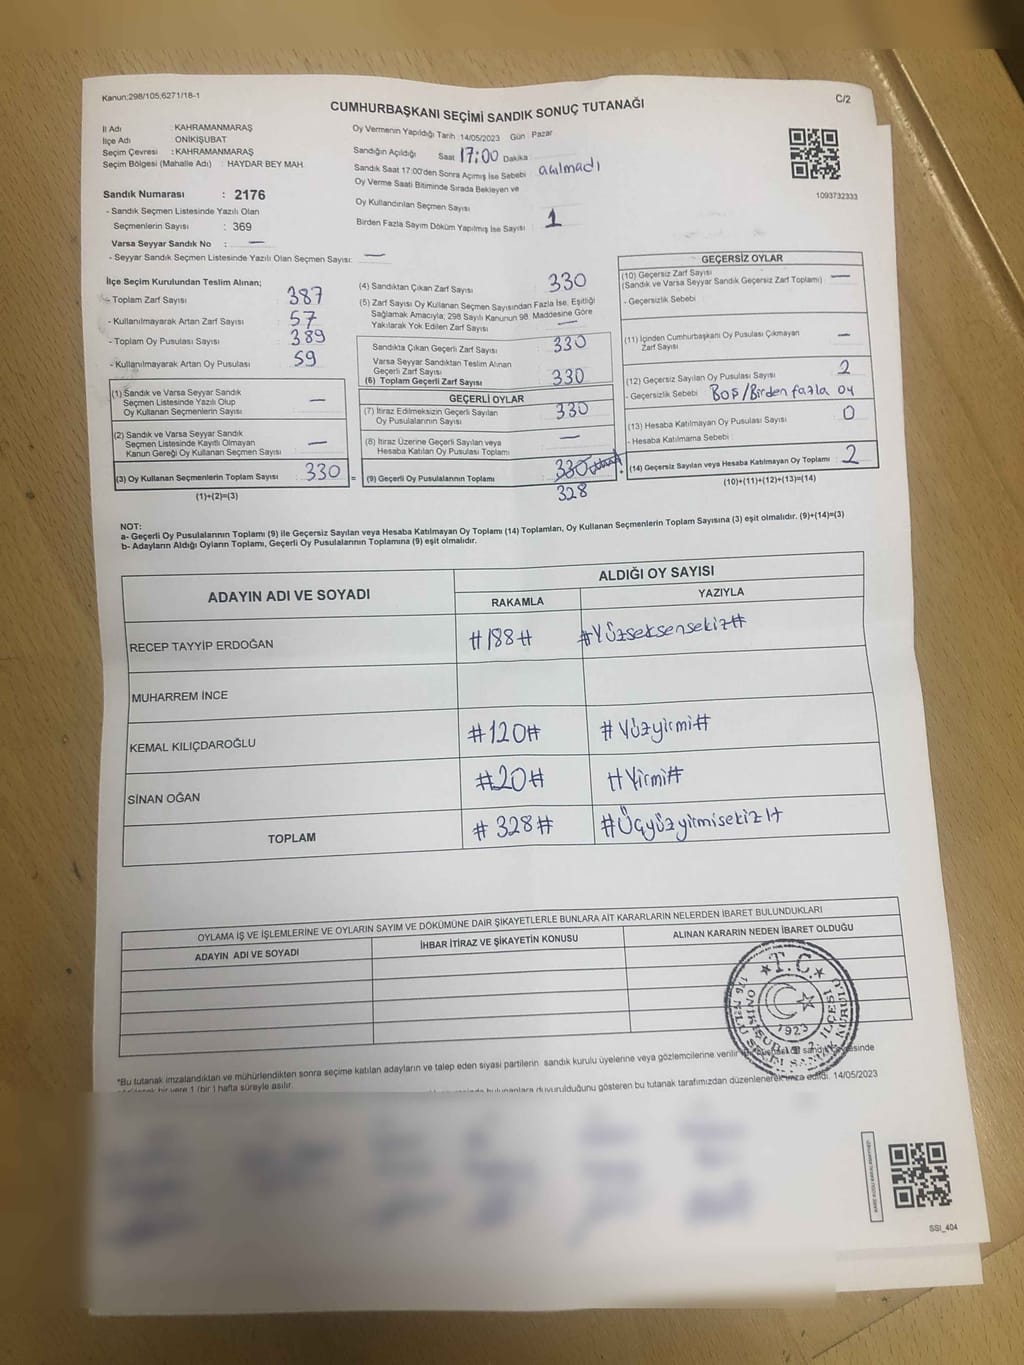 Kanun:298/105,6271/18-1
CUMHURBAŞKANI SEÇİMİ SANDIK SONUÇ TUTANAĞI
C/2
İl Adı : KAHRAMANMARAŞ
İlçe Adı : ONİKİŞUBAT
Seçim Çevresi : KAHRAMANMARAŞ
Seçim Bölgesi (Mahalle Adı) : HAYDAR BEY MAH.
Sandık Numarası : 2176
- Sandık Seçmen Listesinde Yazılı Olan
Seçmenlerin Sayısı : 369
Varsa Seyyar Sandık No : —
- Seyyar Sandık Seçmen Listesinde Yazılı Olan Seçmen Sayısı: —
Oy Vermenin Yapıldığı Tarih :14/05/2023 Gün : Pazar
Sandığın Açıldığı Saat 17:00 Dakika
Sandık Saat 17:00'den Sonra Açımış İse Sebebi açılmadı
Oy Verme Saati Bitiminde Sırada Bekleyen ve
Oy Kullandırılan Seçmen Sayısı
Birden Fazla Sayım Döküm Yapılmış İse Sayısı 1
1093732333
İlçe Seçim Kurulundan Teslim Alınan;
- Toplam Zarf Sayısı 387
- Kullanılmayarak Artan Zarf Sayısı 57
- Toplam Oy Pusulası Sayısı 389
- Kullanılmayarak Artan Oy Pusulası 59
(1) Sandık ve Varsa Seyyar Sandık
Seçmen Listesinde Yazılı Olup
Oy Kullanan Seçmenlerin Sayısı —
(2) Sandık ve Varsa Seyyar Sandık
Seçmen Listesinde Kayıtlı Olmayan
Kanun Gereği Oy Kullanan Seçmen Sayısı —
(3) Oy Kullanan Seçmenlerin Toplam Sayısı 330 =
(1)+(2)=(3)
(4) Sandıktan Çıkan Zarf Sayısı 330
(5) Zarf Sayısı Oy Kullanan Seçmen Sayısından Fazla İse, Eşitliği
Sağlamak Amacıyla, 298 Sayılı Kanunun 98. Maddesine Göre
Yakılarak Yok Edilen Zarf Sayısı —
Sandıkta Çıkan Geçerli Zarf Sayısı 330
Varsa Seyyar Sandıktan Teslim Alınan
Geçerli Zarf Sayısı
(6) Toplam Geçerli Zarf Sayısı 330
GEÇERLİ OYLAR
(7) İtiraz Edilmeksizin Geçerli Sayılan
Oy Pusulasının Sayısı 330
(8) İtiraz Üzerine Geçerli Sayılan veya
Hesaba Katılan Oy Pusulası Toplamı —
(9) Geçerli Oy Pusulalarının Toplamı 330 +
328
GEÇERSİZ OYLAR
(10) Geçersiz Zarf Sayısı —
(Sandık ve Varsa Seyyar Sandık Geçersiz Zarf Toplamı)
- Geçersizlik Sebebi
(11) İçinden Cumhurbaşkanı Oy Pusulası Çıkmayan —
Zarf Sayısı
(12) Geçersiz Sayılan Oy Pusulası Sayısı 2
- Geçersizlik Sebebi Boş/Birden fazla oy
(13) Hesaba Katılmayan Oy Pusulası Sayısı 0
- Hesaba Katılmama Sebebi
(14) Geçersiz Sayılan veya Hesaba Katılmayan Oy Toplamı 2
(10)+(11)+(12)+(13)=(14)
NOT:
a- Geçerli Oy Pusulalarının Toplamı (9) ile Geçersiz Sayılan veya Hesaba Katılmayan Oy Toplamı (14) Toplamları, Oy Kullanan Seçmenlerin Toplam Sayısına (3) eşit olmalıdır. (9)+(14)=(3)
b- Adayların Aldığı Oyların Toplamı, Geçerli Oy Pusulalarının Toplamına (9) eşit olmalıdır.
ADAYIN ADI VE SOYADI
ALDIĞI OY SAYISI
RAKAMLA YAZIYLA
RECEP TAYYİP ERDOĞAN #188# #Yüzseksensekiz#
MUHARREM İNCE
KEMAL KILIÇDAROĞLU #120# #Yüzyirmi#
SİNAN OĞAN #20# #Yirmi#
TOPLAM #328# #Üçyüzyirmisekiz#
OYLAMA İŞ VE İŞLEMLERİNE VE OYLARIN SAYIM VE DÖKÜMÜNE DAİR ŞİKAYETLERLE BUNLARA AİT KARARLARIN NELERDEN İBARET BULUNDUKLARI
ADAYIN ADI VE SOYADI İHBAR İTİRAZ VE ŞİKAYETİN KONUSU ALINAN KARARIN NEDEN İBARET OLDUĞU
T.C.
1923
*Bu tutanak imzalandıktan ve mühürlendikten sonra seçime katılan adayların ve talep eden siyasi partilerin sandık kurulu üyelerine veya gözlemcilerine verilir
1 (bir) hafta süreyle asılır.
bulunanlara duyurulduğunu gösteren bu tutanak tarafımızdan düzenlenerek imza edildi. 14/05/2023
SSI_404